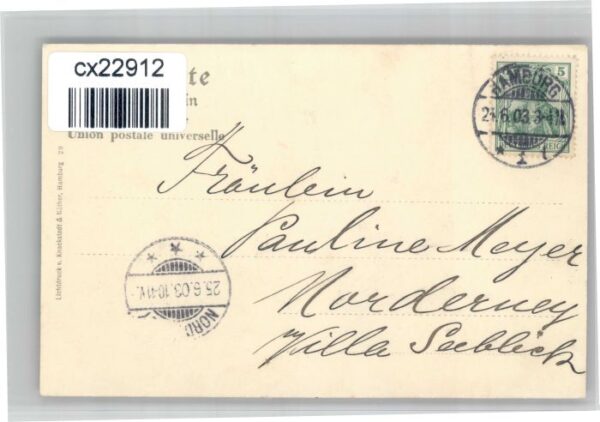 cx22912
te
in
Union postale universelle
5
HAMBURG
6.03
1
REICH
Fräulein
Pauline Meyer
Norderney
Villa Seeblick
25.6.03.10-11V.
NORD
Lichtdruck v. Knackstedt & Näther, Hamburg